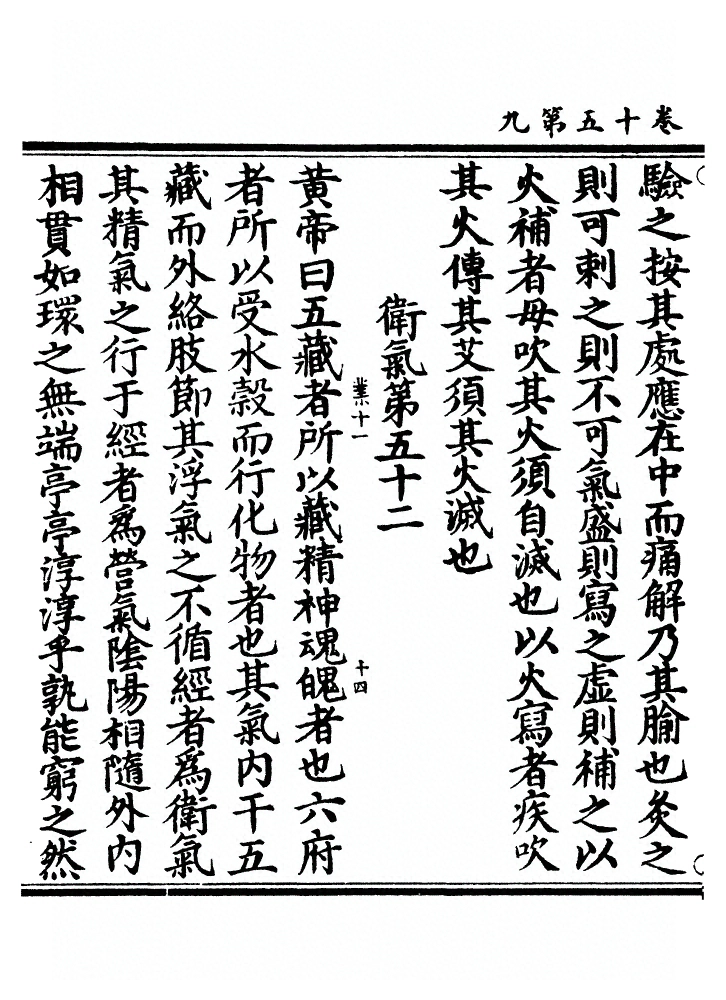 九第五十卷
驗之按其處應在中而痛解乃其腧也灸之
則可刺之則不可氣盛則寫之虛則補之以
火補者毋吹其火須自滅也以火寫者疾吹
其火傳其艾須其火滅也
衛氣第五十二
業十一
十四
黃帝曰五藏者所以藏精神魂魄者也六府
者所以受水穀而行化物者也其氣內干五
藏而外絡肢節其浮氣之不循經者為衛氣
其精氣之行于經者為營氣陰陽相隨外內
相貫如環之無端亭亭淳淳乎孰能窮之然